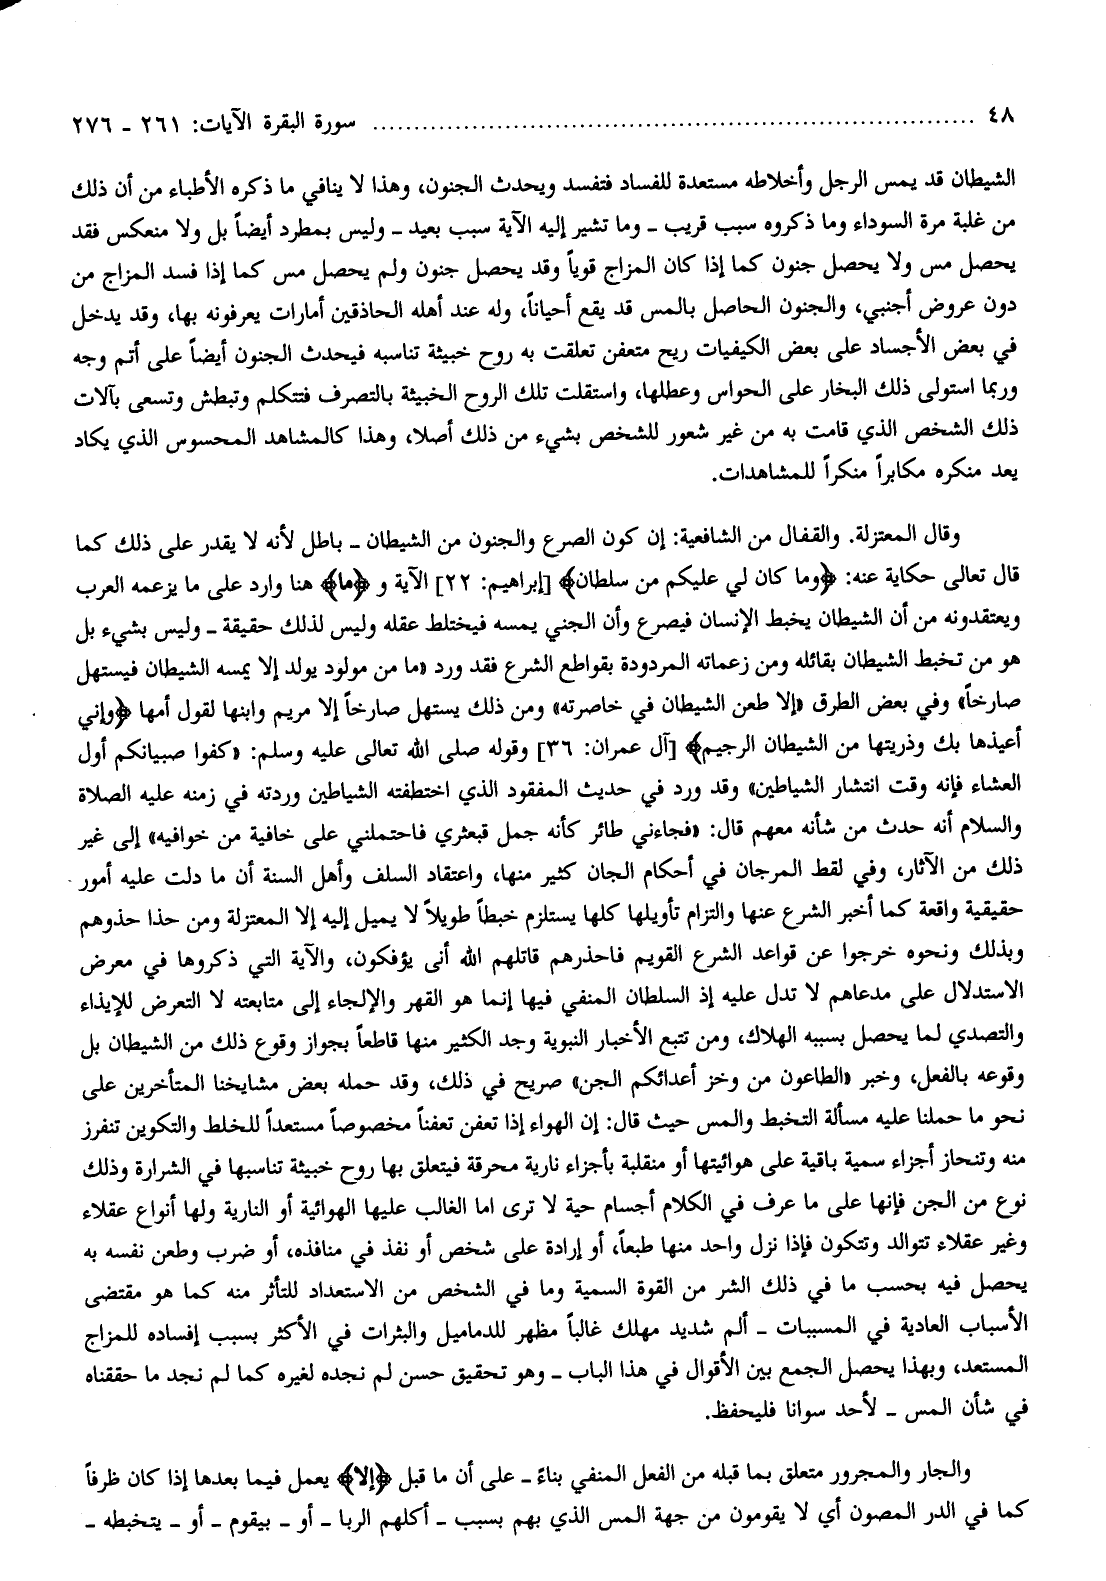 ٤٨ .......................................................................... سورة البقرة الآيات: ٢٦١ ـ ٢٧٦
الشيطان قد يمس الرجل وأخلاطه مستعدة للفساد فتفسد ويحدث الجنون، وهذا لا ينافي ما ذكره الأطباء من أن ذلك
من غلبة مرة السوداء وما ذكروه سبب قريب ـ وما تشير إليه الآية سبب بعيد ـ وليس بمطرد أيضاً بل ولا منعكس فقد
يحصل مس ولا يحصل جنون كما إذا كان المزاج قوياً وقد يحصل جنون ولم يحصل مس كما إذا فسد المزاج من
دون عروض أجنبي، والجنون الحاصل بالمس قد يقع أحياناً، وله عند أهله الحاذقين أمارات يعرفونه بها، وقد يدخل
في بعض الأجساد على بعض الكيفيات ريح متعفن تعلقت به روح خبيثة تناسبه فيحدث الجنون أيضاً على أتم وجه
وربما استولى ذلك البخار على الحواس وعطلها، واستقلت تلك الروح الخبيثة بالتصرف فتتكلم وتبطش وتسعى بآلات
ذلك الشخص الذي قامت به من غير شعور للشخص بشيء من ذلك أصلا، وهذا كالمشاهد المحسوس الذي يكاد
يعد منكره مكابراً منكراً للمشاهدات.
وقال المعتزلة. والقفال من الشافعية: إن كون الصرع والجنون من الشيطان ـ باطل لأنه لا يقدر على ذلك كما
قال تعالى حكاية عنه: ﴿وما كان لي عليكم من سلطان﴾ [إبراهيم: ٢٢] الآية و ﴿ما﴾ هنا وارد على ما يزعمه العرب
ويعتقدونه من أن الشيطان يخبط الإنسان فيصرع وأن الجني يمسه فيختلط عقله وليس لذلك حقيقة ـ وليس بشيء بل
هو من تخبط الشيطان بقائله ومن زعماته المردودة بقواطع الشرع فقد ورد «ما من مولود يولد إلا يمسه الشيطان فيستهل
صارخاً» وفي بعض الطرق «إلا طعن الشيطان في خاصرته» ومن ذلك يستهل صارخاً إلا مريم وابنها لقول أمها ﴿وإني
أعيذها بك وذريتها من الشيطان الرجيم﴾ [آل عمران: ٣٦] وقوله صلى الله تعالى عليه وسلم: «كفوا صبيانكم أول
العشاء فإنه وقت انتشار الشياطين» وقد ورد في حديث المفقود الذي اختطفته الشياطين وردته في زمنه عليه الصلاة
والسلام أنه حدث من شأنه معهم قال: «فجاءني طائر كأنه جمل قبعثري فاحتملني على خافية من خوافيه» إلى غير
ذلك من الآثار، وفي لقط المرجان في أحكام الجان كثير منها، واعتقاد السلف وأهل السنة أن ما دلت عليه أمور
حقيقية واقعة كما أخبر الشرع عنها والتزام تأويلها كلها يستلزم خبطاً طويلاً لا يميل إليه إلا المعتزلة ومن حذا حذوهم
وبذلك ونحوه خرجوا عن قواعد الشرع القويم فاحذرهم قاتلهم الله أنى يؤفكون، والآية التي ذكروها في معرض
الاستدلال على مدعاهم لا تدل عليه إذ السلطان المنفي فيها إنما هو القهر والإلجاء إلى متابعته لا التعرض للإيذاء
والتصدي لما يحصل بسببه الهلاك، ومن تتبع الأخبار النبوية وجد الكثير منها قاطعاً بجواز وقوع ذلك من الشيطان بل
وقوعه بالفعل، وخبر «الطاعون من وخز أعدائكم الجن» صريح في ذلك، وقد حمله بعض مشايخنا المتأخرين على
نحو ما حملنا عليه مسألة التخبط والمس حيث قال: إن الهواء إذا تعفن تعفناً مخصوصاً مستعداً للخلط والتكوين تنفرز
منه وتنحاز أجزاء سمية باقية على هوائيتها أو منقلبة بأجزاء نارية محرقة فيتعلق بها روح خبيثة تناسبها في الشرارة وذلك
نوع من الجن فإنها على ما عرف في الكلام أجسام حية لا ترى اما الغالب عليها الهوائية أو النارية ولها أنواع عقلاء
وغير عقلاء تتوالد وتتكون فإذا نزل واحد منها طبعاً، أو إرادة على شخص أو نفذ في منافذه، أو ضرب وطعن نفسه به
يحصل فيه بحسب ما في ذلك الشر من القوة السمية وما في الشخص من الاستعداد للتأثر منه كما هو مقتضى
الأسباب العادية في المسببات ـ ألم شديد مهلك غالباً مظهر للدماميل والبثرات في الأكثر بسبب إفساده للمزاج
المستعد، وبهذا يحصل الجمع بين الأقوال في هذا الباب ـ وهو تحقيق حسن لم نجده لغيره كما لم نجد ما حققناه
في شأن المس ـ لأحد سوانا فليحفظ.
والجار والمجرور متعلق بما قبله من الفعل المنفي بناءً ـ على أن ما قبل ﴿إلا﴾ يعمل فيما بعدها إذا كان ظرفاً
كما في الدر المصون أي لا يقومون من جهة المس الذي بهم بسبب ـ أكلهم الربا ـ أو ـ بيقوم ـ أو ـ يتخبطه ـ